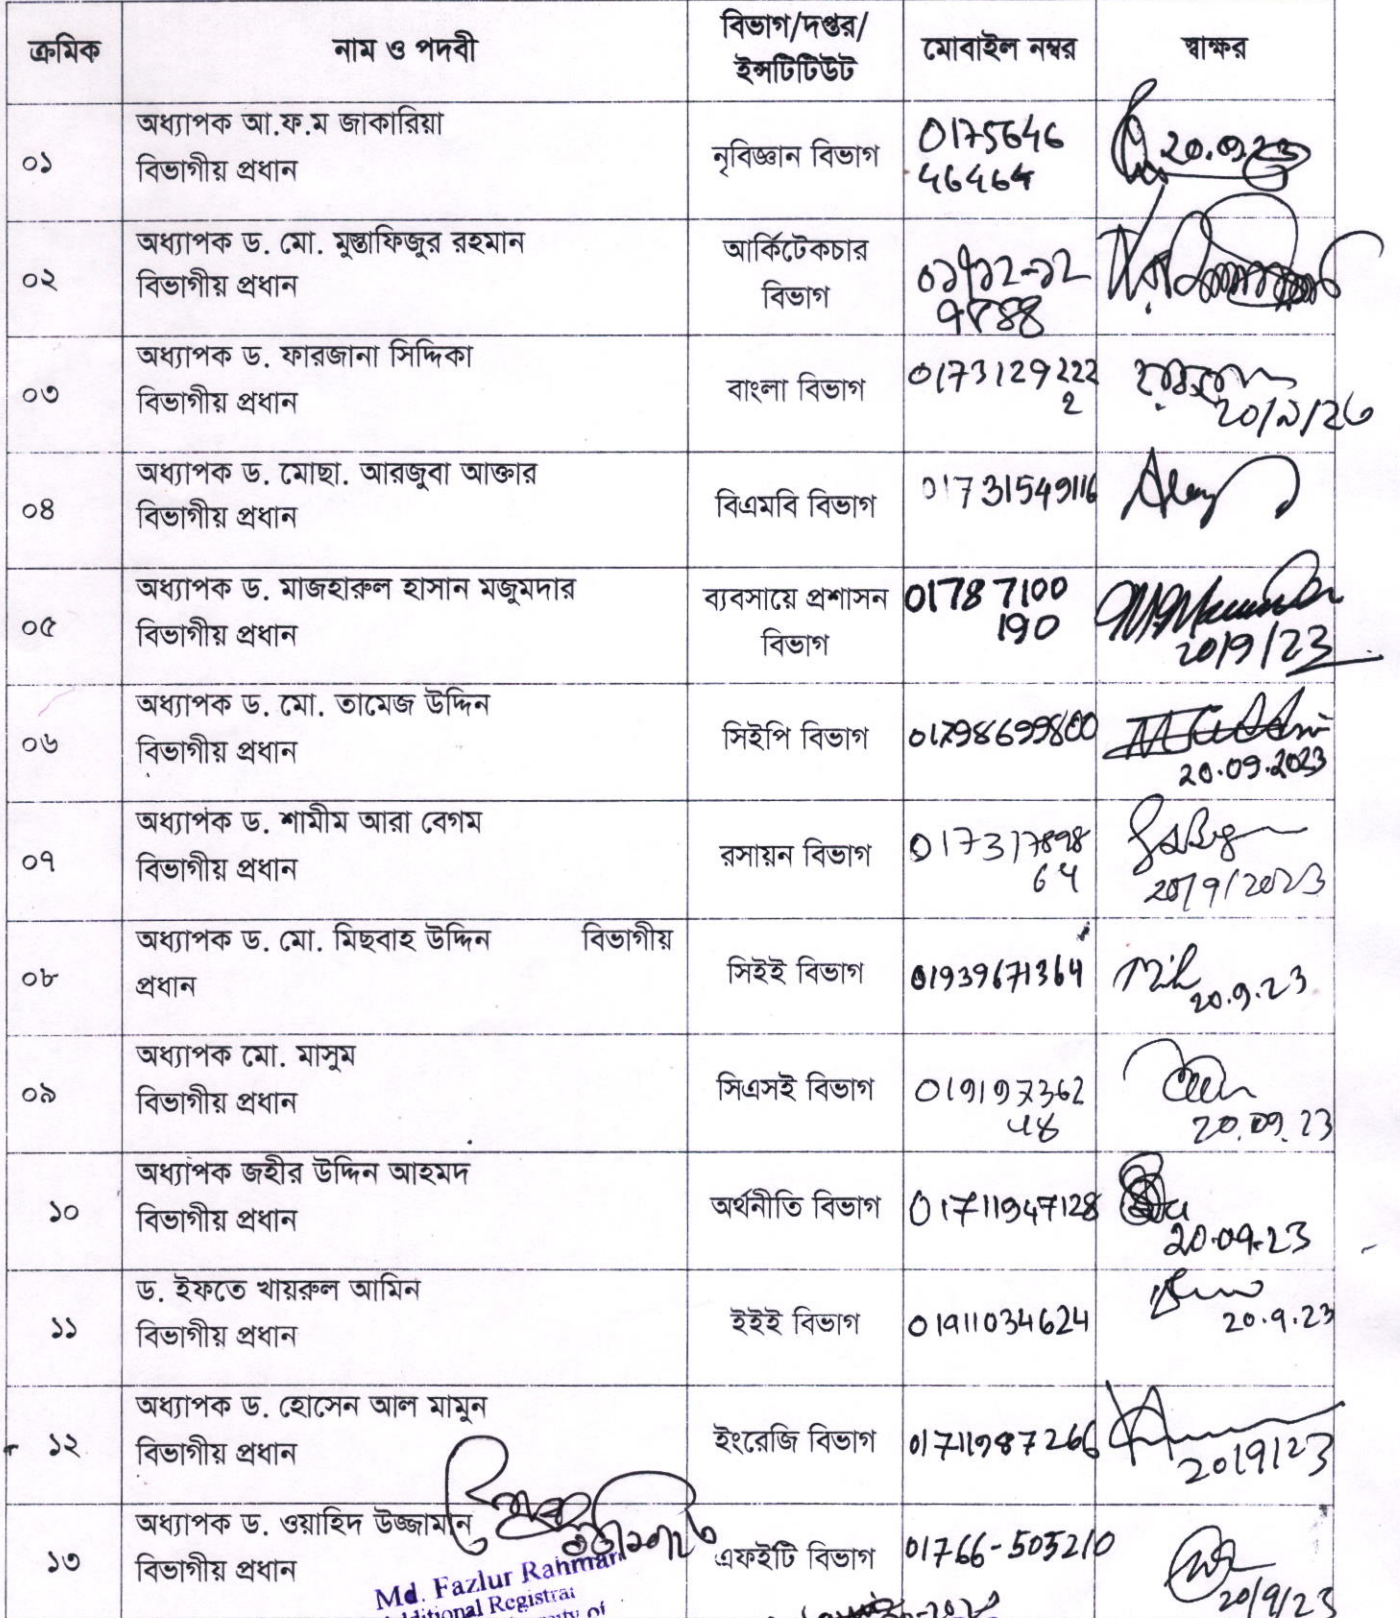 ক্রমিক নাম ও পদবী বিভাগ/দপ্তর/ইন্সটিটিউট মোবাইল নম্বর স্বাক্ষর
০১ অধ্যাপক আ.ফ.ম জাকারিয়া
বিভাগীয় প্রধান
নৃবিজ্ঞান বিভাগ
0175646
46464
20.09.23
০২ অধ্যাপক ড. মো. মুস্তাফিজুর রহমান
বিভাগীয় প্রধান
আর্কিটেকচার
বিভাগ
০৩ অধ্যাপক ড. ফারজানা সিদ্দিকা
বিভাগীয় প্রধান
বাংলা বিভাগ
0173129222
2
০৪ অধ্যাপক ড. মোছা. আরজুবা আক্তার
বিভাগীয় প্রধান
বিএমবি বিভাগ
01731549116
০৫ অধ্যাপক ড. মাজহারুল হাসান মজুমদার
বিভাগীয় প্রধান
ব্যবসায়ে প্রশাসন
বিভাগ
01787100
190
20/9/23
০৬ অধ্যাপক ড. মো. তামেজ উদ্দিন
বিভাগীয় প্রধান
সিইপি বিভাগ
20.09.2023
০৭ অধ্যাপক ড. শামীম আরা বেগম
বিভাগীয় প্রধান
রসায়ন বিভাগ
20/9/2023
০৮ অধ্যাপক ড. মো. মিছবাহ উদ্দিন বিভাগীয়
প্রধান
সিইই বিভাগ
01939671364
20.9.23
০৯ অধ্যাপক মো. মাসুম
বিভাগীয় প্রধান
সিএসই বিভাগ
20.09.23
১০ অধ্যাপক জহীর উদ্দিন আহমদ
বিভাগীয় প্রধান
অর্থনীতি বিভাগ
01711947128
20.09.23
১১ ড. ইফতে খায়রুল আমিন
বিভাগীয় প্রধান
ইইই বিভাগ
01911034624
20.9.23
১২ অধ্যাপক ড. হোসেন আল মামুন
বিভাগীয় প্রধান
ইংরেজি বিভাগ
01711987266
20/9/23
১৩ অধ্যাপক ড. ওয়াহিদ উজ্জামান
বিভাগীয় প্রধান
এফইটি বিভাগ
01766-505210
20/9/23
Md. Fazlur Rahman
Additional Registrar